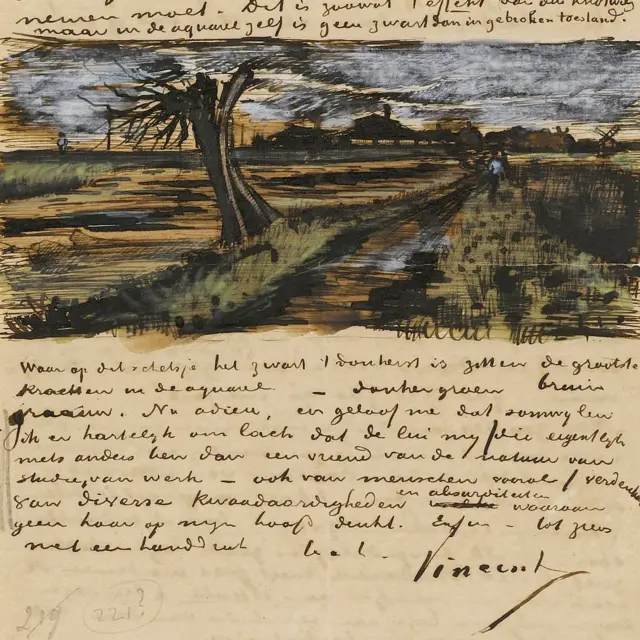 nemen moet. Dit is zoowat 't effekt van den knotwilg
maar in de aquarel zelf is geen zwart dan in gebroken toestand.
Waar op dit schetsje het zwart 't donkerst is zitten de grootste
krachten in de aquarel – donkergroen bruin
graauw. Nu adieu, en geloof me dat somwylen
ik er hartelyk om lach dat de lui my (die eigentlyk
niets anders ben dan een vriend van de natuur van
studie, van werk – ook van menschen vooral) verdenken
van diverse kwaadaardigheden en absurditeiten waaraan
geen haar op myn hoofd denkt. Enfin – tot ziens
met een handdruk t. à t.
Vincent
219 221?